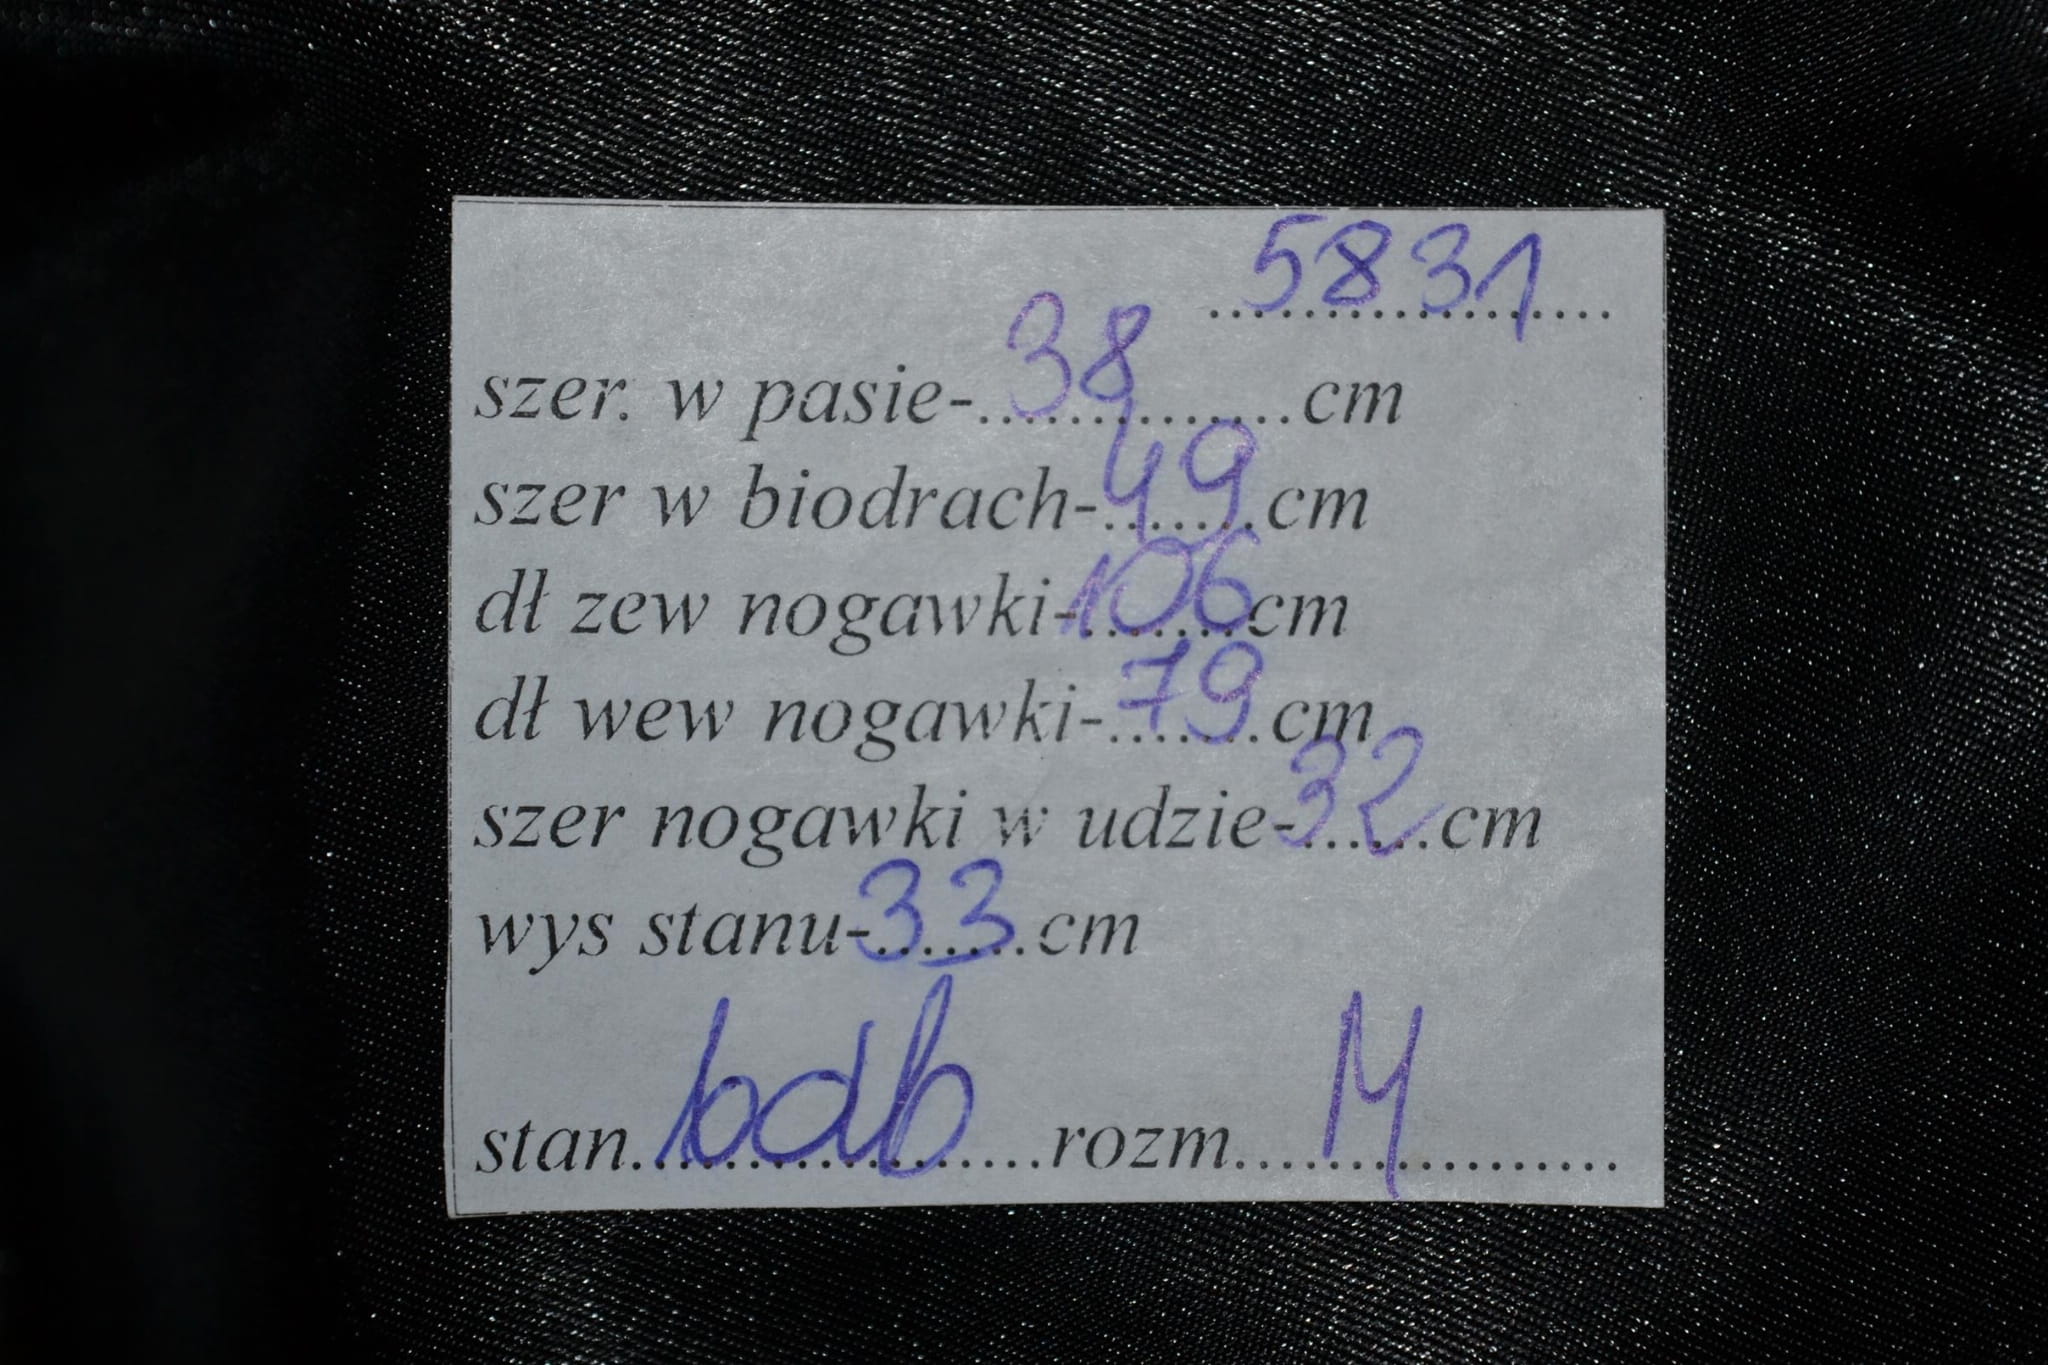 5831
szer. w pasie-38cm
szer w biodrach-49cm
dł zew nogawki-106cm
dł wew nogawki-79cm
szer nogawki w udzie-32cm
wys stanu-33cm
stan bdb rozm M